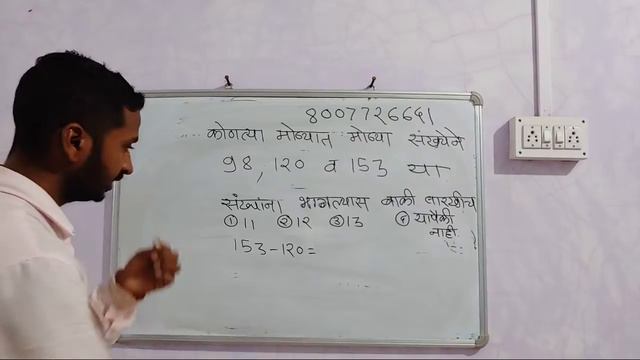 8007726661
कोणत्या मोठ्यात मोठ्या संख्येने
98, 120 व 153 या
संख्यांना भागल्यास बाकी सारखीच
① 11 ② 12 ③ 13 ④ यापैकी नाही
153-120=